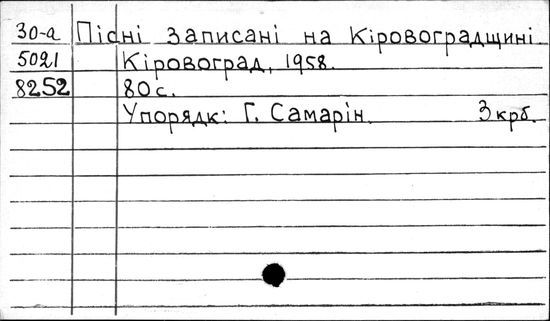 30-а Пісні записані на Кіровоградщині
5021 Кіровоград, 1958.
8252 80 с.
Упорядк: Г. Самарін. 3 крб.